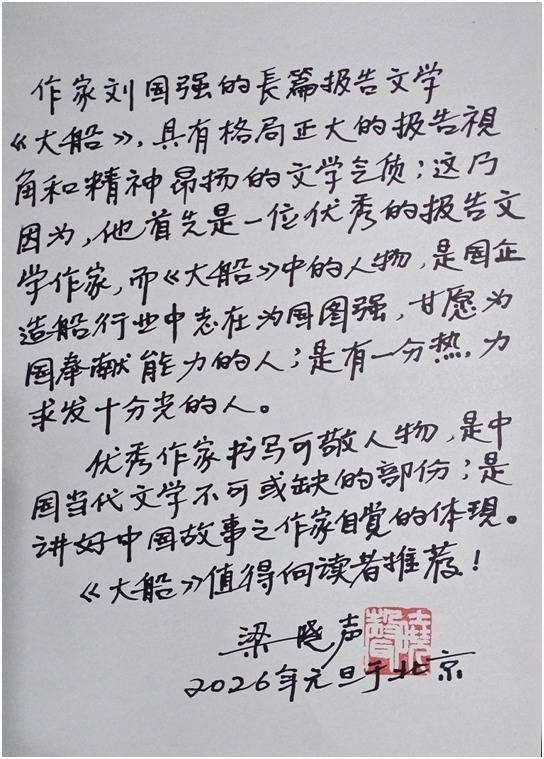 作家刘国强的長篇报告文学
《大船》,具有格局正大的报告視
角和精神昂扬的文学气质;这乃
因为,他首先是一位优秀的报告文
学作家,而《大船》中的人物,是国企
造船行业中志在为国图强,甘愿为
国奉献能力的人;是有一分热,力
求发十分光的人。
优秀作家书写可敬人物,是中
国当代文学不可或缺的部份;是
讲好中国故事之作家自覺的体現。
《大船》值得向读者推荐!
梁晓声
曉聲
2026年元旦于北京